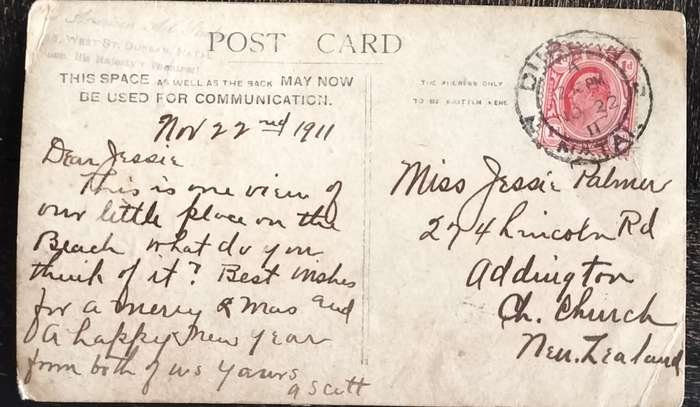 WEST ST. DURBAN, NATAL
POST CARD
THIS SPACE AS WELL AS THE BACK MAY NOW
BE USED FOR COMMUNICATION.
THE ADDRESS ONLY
TO BE WRITTEN HERE
DURBAN
PM
22
11
NATAL
Nov 22nd 1911
Dear Jessie
This is one view of
our little place on the
Beach what do you
think of it? Best wishes
for a merry Xmas and
a happy new year
from both of us yours
a Scott
Miss Jessie Palmer
274 Lincoln Rd
Addington
Ch. Church
New Zealand